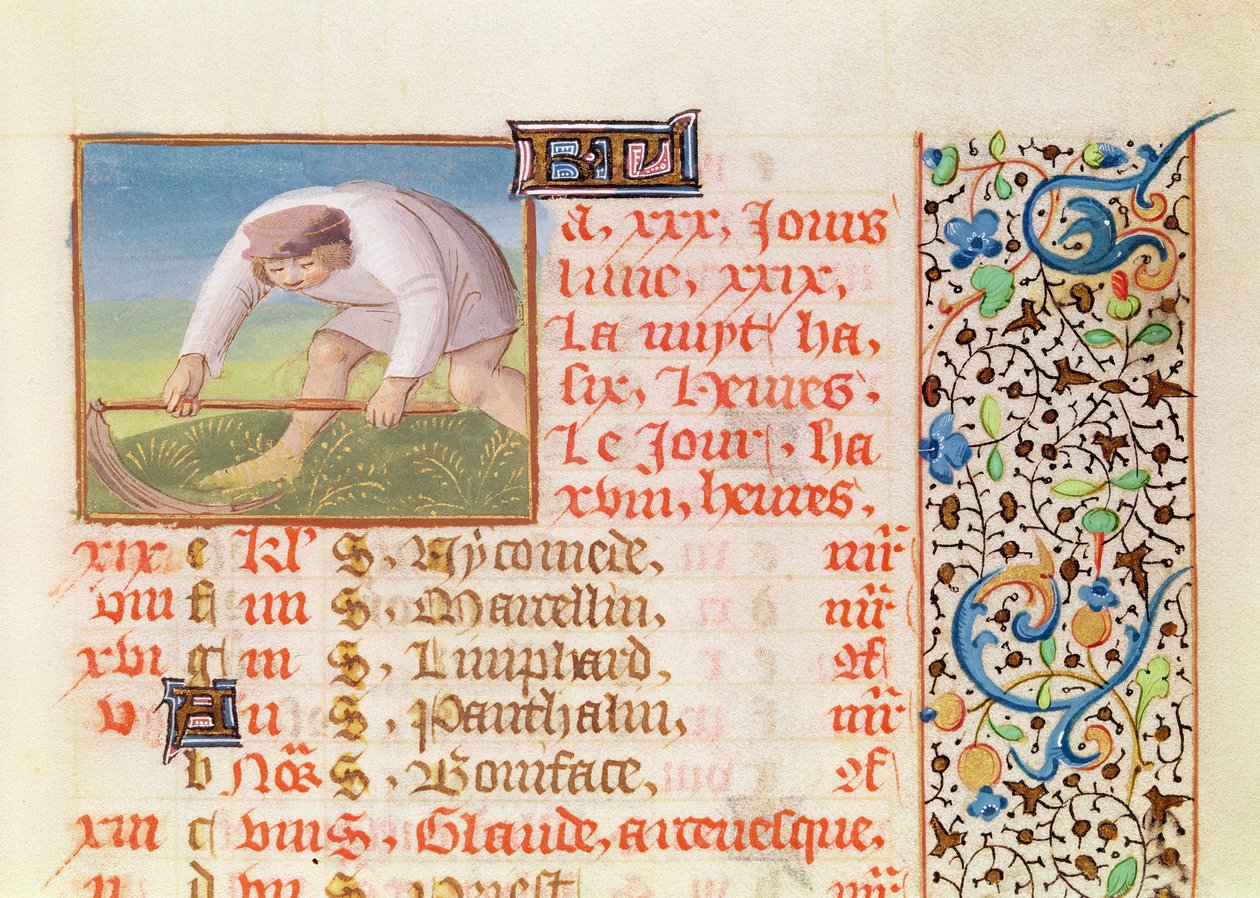 KL
a, xxx, Jours
lune, xxix,
La nuyt ha,
six, Heures.
Le Jour, ha
xviii, heures.
xix e kl' S, Nycomede,
viii f iiii S, Marcellin,
xvi g iii S, Limphard,
v A ii S, Panthalin,
b Noñ S, Boniface,
xiii c viii S, Glaude, arcevesque,
ii d vii S